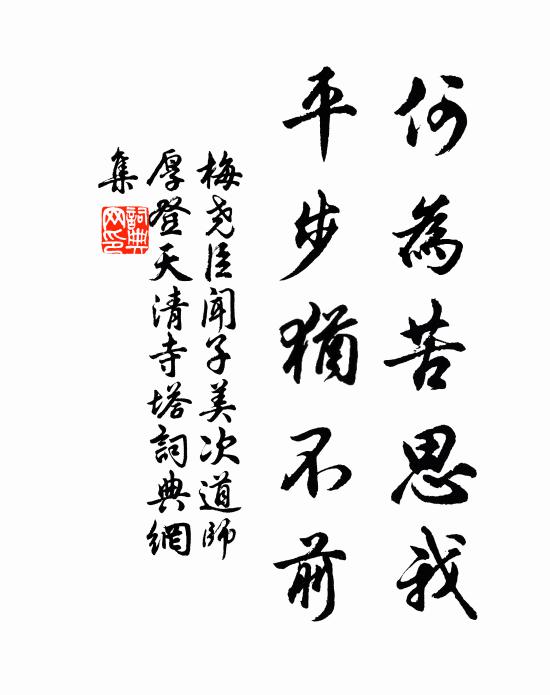 何為苦思我
平步猶不前
梅堯臣聞子美次道師
厚登天清寺塔詞典網
集
詞典
网印